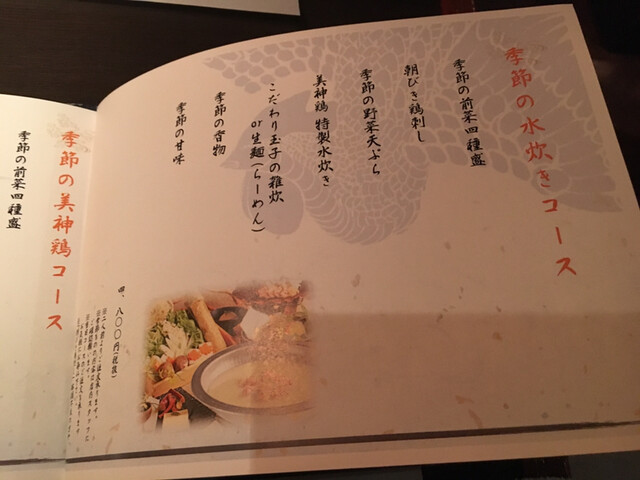 季節の水炊きコース
季節の前菜四種盛
朝びき鶏刺し
季節の野菜天ぷら
美神鶏 特製水炊き
こだわり玉子の雑炊
or生麺(らーめん)
季節の香物
季節の甘味
四、八〇〇円(税抜)
季節の美神鶏コース
季節の前菜四種盛